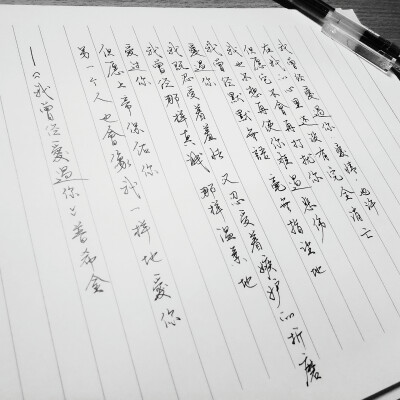 我曾经愛過你 愛情 也许
在我心里还没有完全消亡
但愿它不會再打扰你
我也不想再使你难過悲伤
我曾经默默無語 毫無指望地
愛過你
我既忍受着羞怯 又忍受着嫉妒的折磨
我曾经那样真诚 那样温柔地
愛过你
但愿上帝保佑你
另一个人也會像我一样地愛你
——《我曾经愛過你》普希金